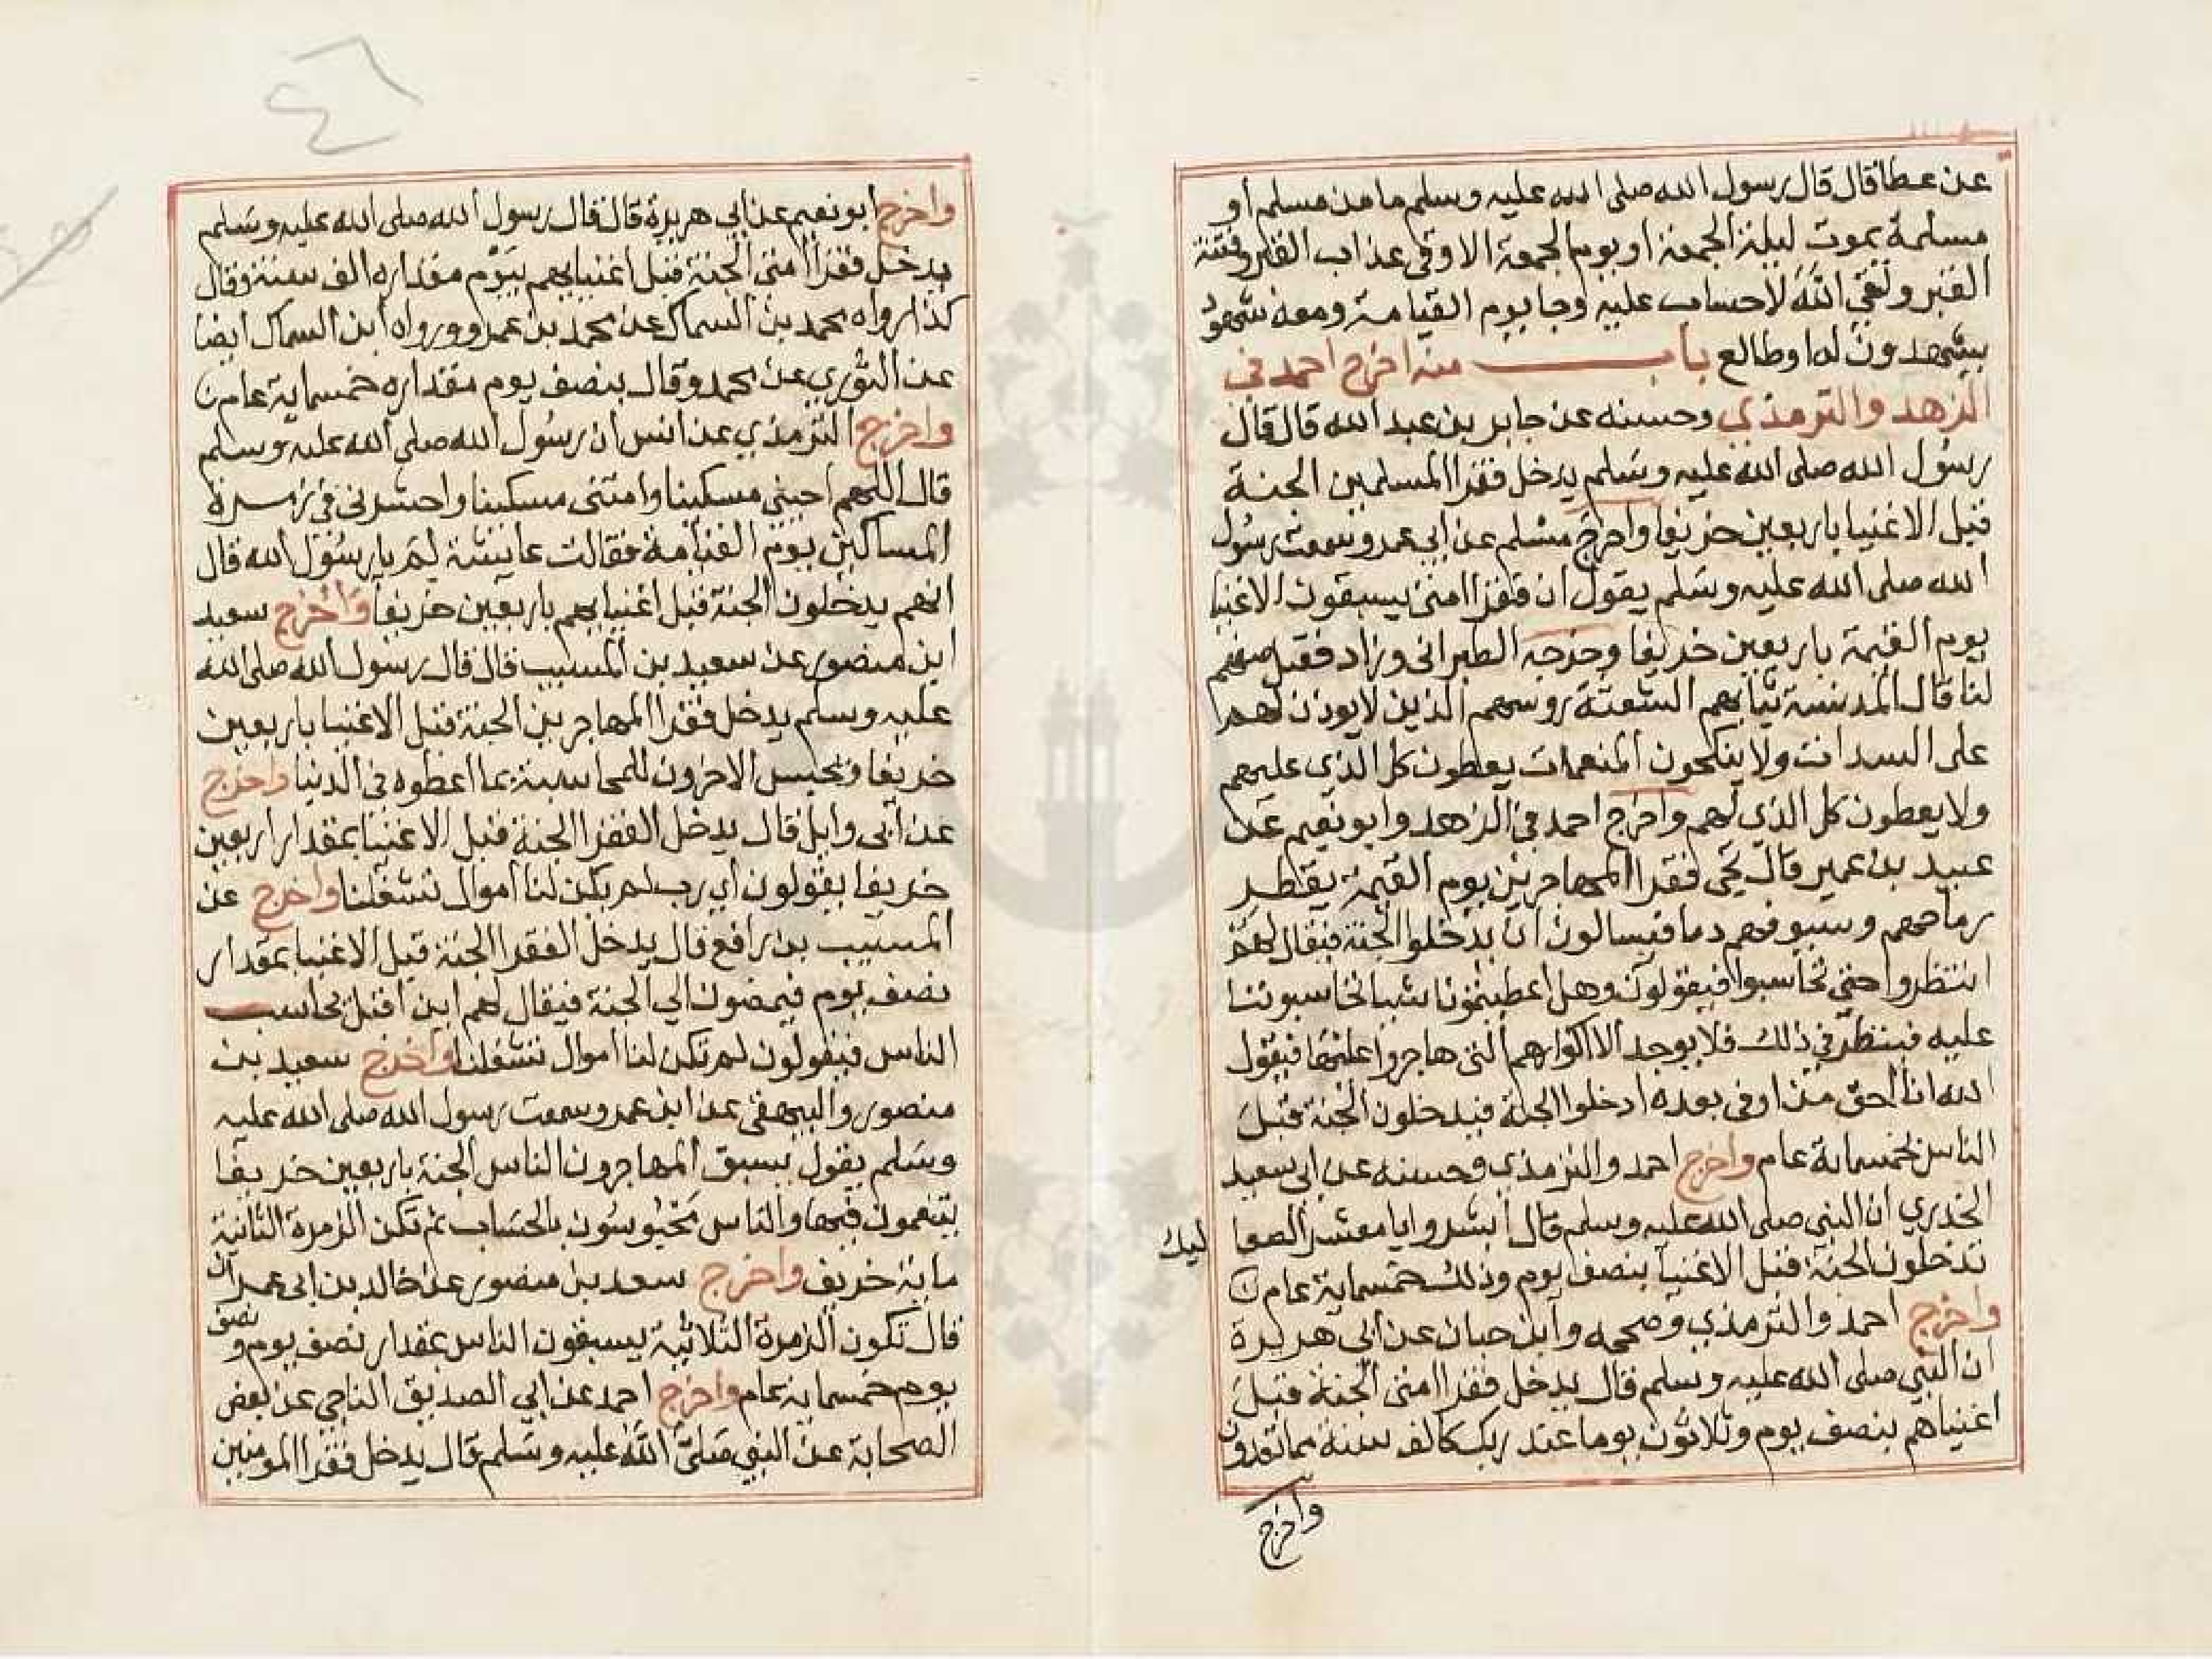 عن عطا قال قال رسول الله صلى الله عليه وسلم ما من مسلم أو
مسلمة يموت ليلة الجمعة او يوم الجمعة الا وقى عذاب القبر وفتنة
القبر ولقي الله لا حساب عليه وجا يوم القيامة ومعه شهود
يشهدون له او طالع باب منه اخرج احمد في
الزهد والترمذي وحسنه عن جابر بن عبد الله قال قال
رسول الله صلى الله عليه وسلم يدخل فقرا المسلمين الجنة
قبل الاغنيا باربعين خريفا واخرج مسلم عن ابي عمرو سمعت رسول
الله صلى الله عليه وسلم يقول ان فقرا امتى يسبقون الاغنيا
يوم القيمة باربعين خريفا وخرجه الطبرانى وزاد فقيل صفهم
لنا قال المدنسة ثيابهم الشعثة روسهم الذين لا يوذن لهم
على السدات ولا ينكحون المنعمات يعطون كل الذي عليهم
ولا يعطون كل الذي لهم واخرج احمد في الزهد وابو نعيم عن
عبيد بن عمير قال يجى فقرا المهاجرين يوم القيمة يقطر
رماحهم وسيوفهم دما فيسالون ان يدخلوا الجنة فيقال لهم
انتظروا حتى تحاسبوا فيقولون وهل اعطيتمونا شيا تحاسبوننا
عليه فينظر في ذلك فلا يوجد الا اكوارهم التى هاجروا عليها فيقول
الله انا احق من اوفى بعده ادخلوا الجنة فيدخلون الجنة قبل
الناس بخمسماية عام واخرج احمد والترمذي وحسنه عن ابي سعيد
الخدري ان النبى صلى الله عليه وسلم قال ابشروا يا معشر الصعا
ليك
تدخلون الجنة قبل الاغنيا بنصف يوم وذلك خمسماية عام
واخرج احمد والترمذي وصححه وابن حبان عن ابى هريرة
ان النبي صلى الله عليه وسلم قال يدخل فقرا امتى الجنة قبل
اغنياهم بنصف يوم وتلاثون يوما عند ربك كالف سنة مما تعدون
واخرج
واخرج ابو نعيم عن ابي هريرة قال قال رسول الله صلى الله عليه وسلم
يدخل فقرا امتى الجنة قبل اغنيايهم بيوم مقداره الف سنة وقال
كذا رواه محمد بن السماك عن محمد بن عمرو ورواه ابن السماك ايضا
عن الثوري عن محمد وقال بنصف يوم مقداره خمسماية عام
واخرج الترمذي عن انس ان رسول الله صلى الله عليه وسلم
قال اللهم احيني مسكينا وامتنى مسكينا واحشرنى في زمرة
المساكين يوم القيامة فقالت عايشة لم يا رسول الله قال
انهم يدخلون الجنة قبل اغنيايهم باربعين خريفا واخرج سعيد
ابن منصور عن سعيد بن المسيب قال قال رسول الله صلى الله
عليه وسلم يدخل فقرا المهاجرين الجنة قبل الاغنيا باربعين
خريفا ويحبس الاخرون للمحاسبة بما اعطوه في الدنيا واخرج
عن ابى وايل قال يدخل الفقرا الجنة قبل الاغنيا بمقدار اربعين
خريفا يقولون اي رب لم يكن لنا اموال تشغلنا واخرج عن
المسيب بن رافع قال يدخل الفقرا الجنة قبل الاغنيا بمقدار
نصف يوم فيمضون الي الجنة فيقال لهم اين اقبل تحاسب
الناس فيقولون لم تكن لنا اموال تشغلنا واخرج سعيد بن
منصور والبيهقى عن ابن عمرو سمعت رسول الله صلى الله عليه
وسلم يقول يسبق المهاجرون الناس الجنة باربعين خريفا
يتنعمون فيها والناس محبوسون بالحساب ثم تكن الزمرة الثانية
ماية خريف واخرج سعد بن منصور عن خالد بن ابى عمران
قال تكون الزمرة الثلاثية يسبقون الناس بمقدار نصف يوم ونصف
يوم خمسماية عام واخرج احمد عن ابي الصديق الناجي عن بعض
الصحابة عن النبي صلى الله عليه وسلم قال يدخل فقرا المومنين